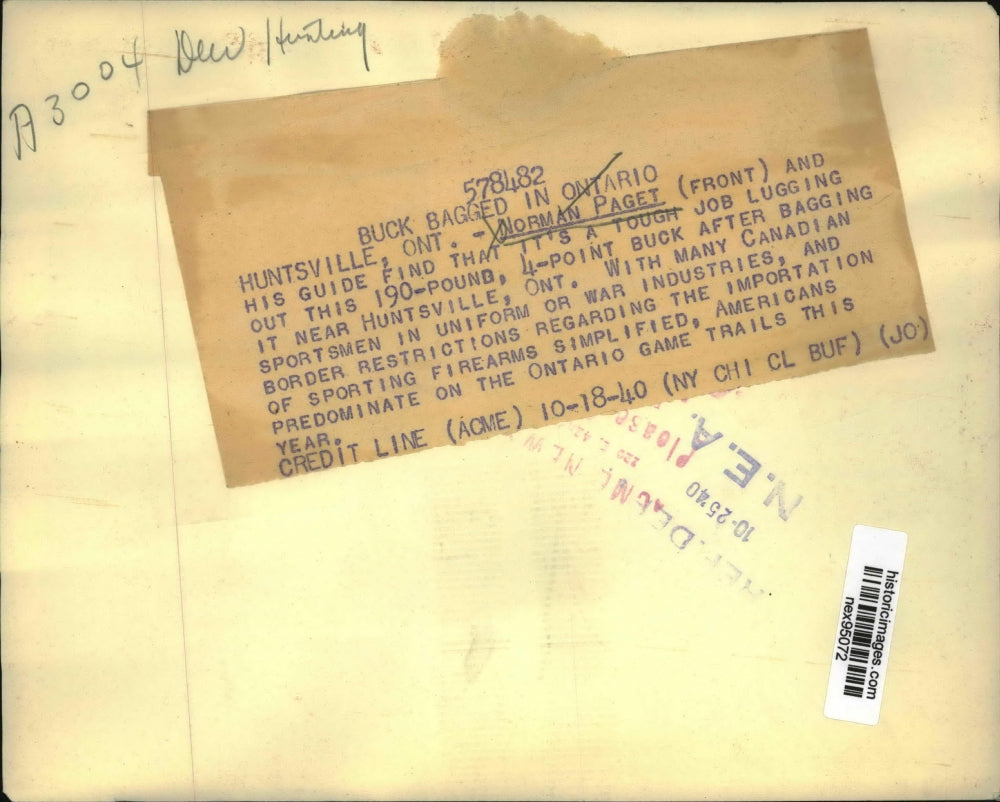 A3004 Deer Hunting
578482
BUCK BAGGED IN ONTARIO
HUNTSVILLE, ONT. - NORMAN PAGET (FRONT) AND
HIS GUIDE FIND THAT IT'S A TOUGH JOB LUGGING
OUT THIS 190-POUND, 4-POINT BUCK AFTER BAGGING
IT NEAR HUNTSVILLE, ONT. WITH MANY CANADIAN
SPORTSMEN IN UNIFORM OR WAR INDUSTRIES, AND
BORDER RESTRICTIONS REGARDING THE IMPORTATION
OF SPORTING FIREARMS SIMPLIFIED, AMERICANS
PREDOMINATE ON THE ONTARIO GAME TRAILS THIS
YEAR.
CREDIT LINE (ACME) 10-18-40 (NY CHI CL BUF) (JO)
Please
N.E.A.
10-25-40
historicimages.com
nex95072